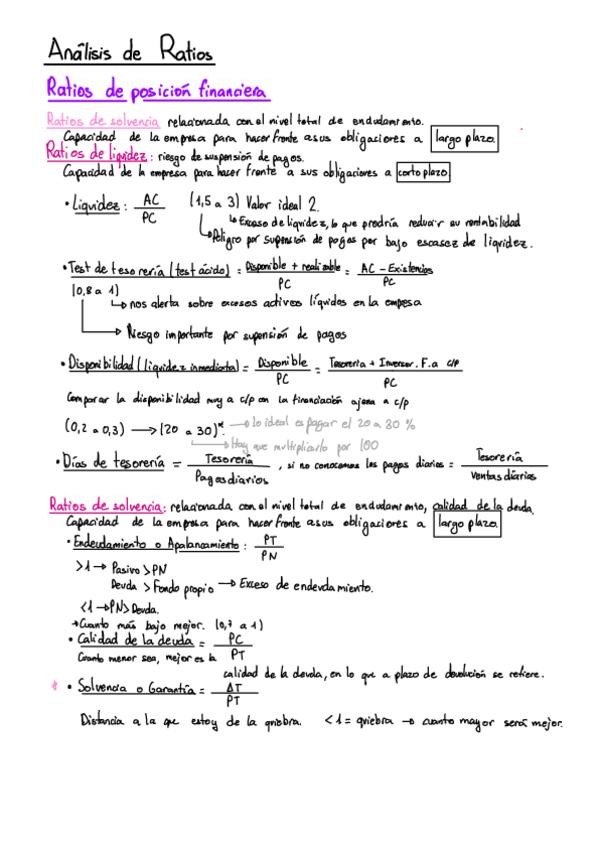 Análisis de Ratios
Ratios de posición financiera
Ratios de solvencia relacionada con el nivel total de endudamiento.
Capacidad de la empresa para hacer frente a sus obligaciones a largo plazo.
Ratios de liquidez: riesgo de suspensión de pagos.
Capacidad de la empresa para hacer frente a sus obligaciones a corto plazo
• Liquidez: AC / PC (1,5 a 3) Valor ideal 2.
↳ Exceso de liquidez, lo que prodría reducir su rentabilidad
↳ Peligro por supensión de pagos por bajo escasez de liqvidez.
• Test de tesorería (test ácido) = Disponible + realizable / PC = AC - Existencias / PC
(0,8 a 1)
↳ nos alerta sobre excesos activos líqvidos en la empesa
→ Riesgo importante por supensión de pagos
• Disponibilidad (liquidez inmediata) = Disponible / PC = Tesorería + Inverser. F.a c/p / PC
Comparar la disponibilidad muy a c/p con la financiación ajena a c/p
(0,2 a 0,3) → (20 a 30)* → lo ideal es pagar el 20 a 30 %
↳ Hay que multiplicarlo por 100
• Días de tesorería = Tesorería / Pagos diarios , si no conocemos los pagos diarios = Tesorería / Ventas diarias
Ratios de solvencia: relacionada con el nivel total de endudamiento, calidad de la deuda.
Capacidad de la empresa para hacer frente a sus obligaciones a largo plazo.
• Endeudamiento o Apalancamiento: PT / PN
>1 → Pasivo > PN
Deuda > Fondo propio → Exceso de endeudamiento.
<1 → PN > Deuda.
→ Cuanto más bajo mejor. (0,7 a 1)
• Calidad de la deuda = PC / PT
Cuanto menor sea, mejor es la
calidad de la deuda, en lo que a plazo de devolución se refiere.
* • Solvencia o Garantía = AT / PT
Distancia a la que estoy de la quiebra. <1 = quiebra → cuanto mayor será mejor.